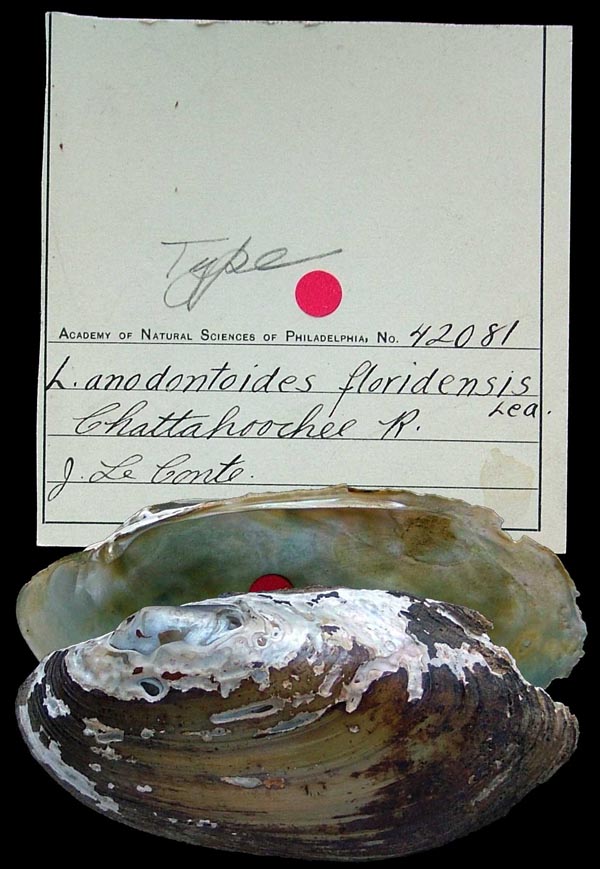 Type
Academy of Natural Sciences of Philadelphia, No. 42081
L. anodontoides floridensis
Lea.
Chattahoochee R.
J. Le Conte.